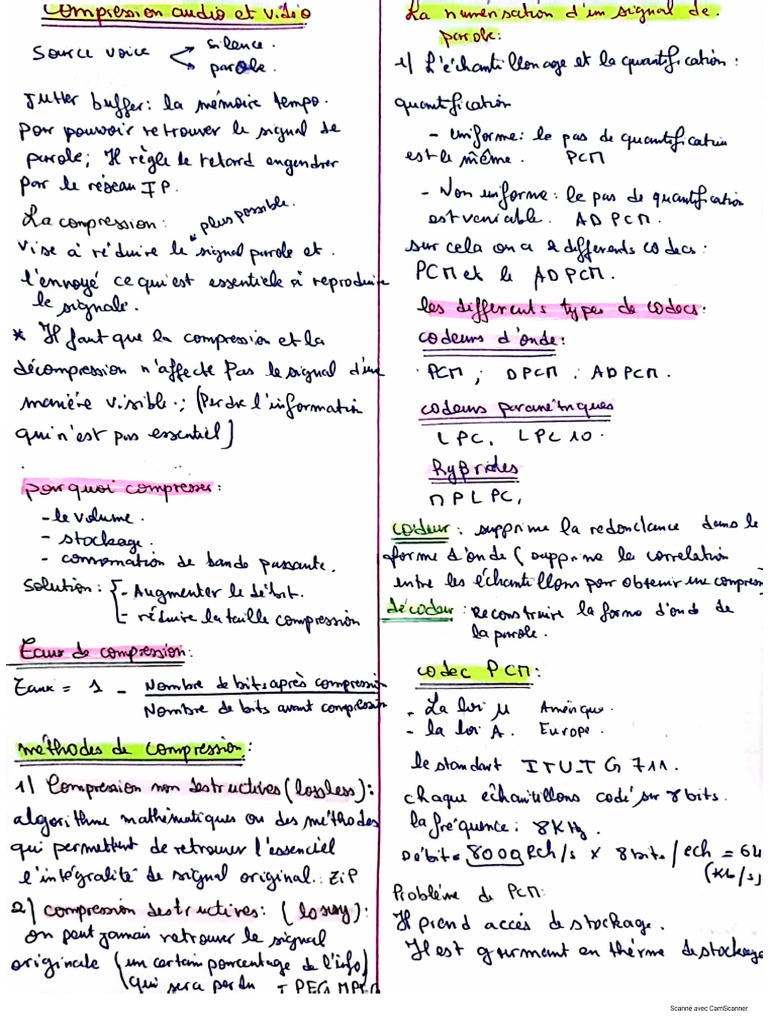 Compression audio et vidéo
Source voice < silence.
parole.
Jutter buffer : la mémoire tempo.
Por pouvoir retrouver le signal de
parole; Il règle le retard engendrer
par le réseau IP.
La compression :
plus possible.
Vise à réduire le signal parole et
l'envoyé ce qui est essentiele à reproduire
le signale.
* Il faut que la compression et la
décompression n'affecte Pas le signal d'une
manière visible.; (Perdre l'information
qui n'est pas essentiel)
pourquoi compresser :
- le volume.
- stockage.
- consomation de bande passante.
Solution : { - Augmenter le débit.
- réduire la taille compression
Taux de compression :
Taux = 1 - Nombre de bits après compression
Nombre de bits avant compression
méthodes de compression :
1) Compression non destructives (lossless) :
algorithme mathématiques ou des méthodes
qui permettent de retrouver l'essenciel
l'intégralité de signal original. ZiP
2) compression destructives : (lossy) :
on peut jamais retrouver le signal
originale (un certain porcentage de l'info)
(qui sera perdu JPEG MPEG
La numérisation d'un signal de
parole :
1) L'échantillonage et la quantification :
quantification
- uniforme : le pas de quantification
est le même. PCM
- Non uniforme : le pas de quantification
est variable. ADPCM.
sur cela on a 2 differents codecs :
PCM et le ADPCM.
les differents types de codecs :
codeurs d'onde :
PCM ; DPCM . ADPCM.
codeurs paramétriques
LPC, LPC 10.
Hybrides
MPLPC,
codeur : supprime la redondance dans le
forme d'onde (supprime la correlation
entre les échantillons por obtenir une compress
décodeur : Reconstruire la forme d'onde de
la parole.
codec PCM :
- La loi µ Amérique
- la loi A. Europe.
le standart ITU-T G 711.
chaque échantillons codé sur 8 bits.
la fréquence : 8KHz.
Débit = 8000 Ech/s x 8 bits/ech = 64
(Kb/s)
Problème de PCM :
Il prend accès de stockage.
Il est gourmant en thérme de stockage
Scanné avec CamScanner